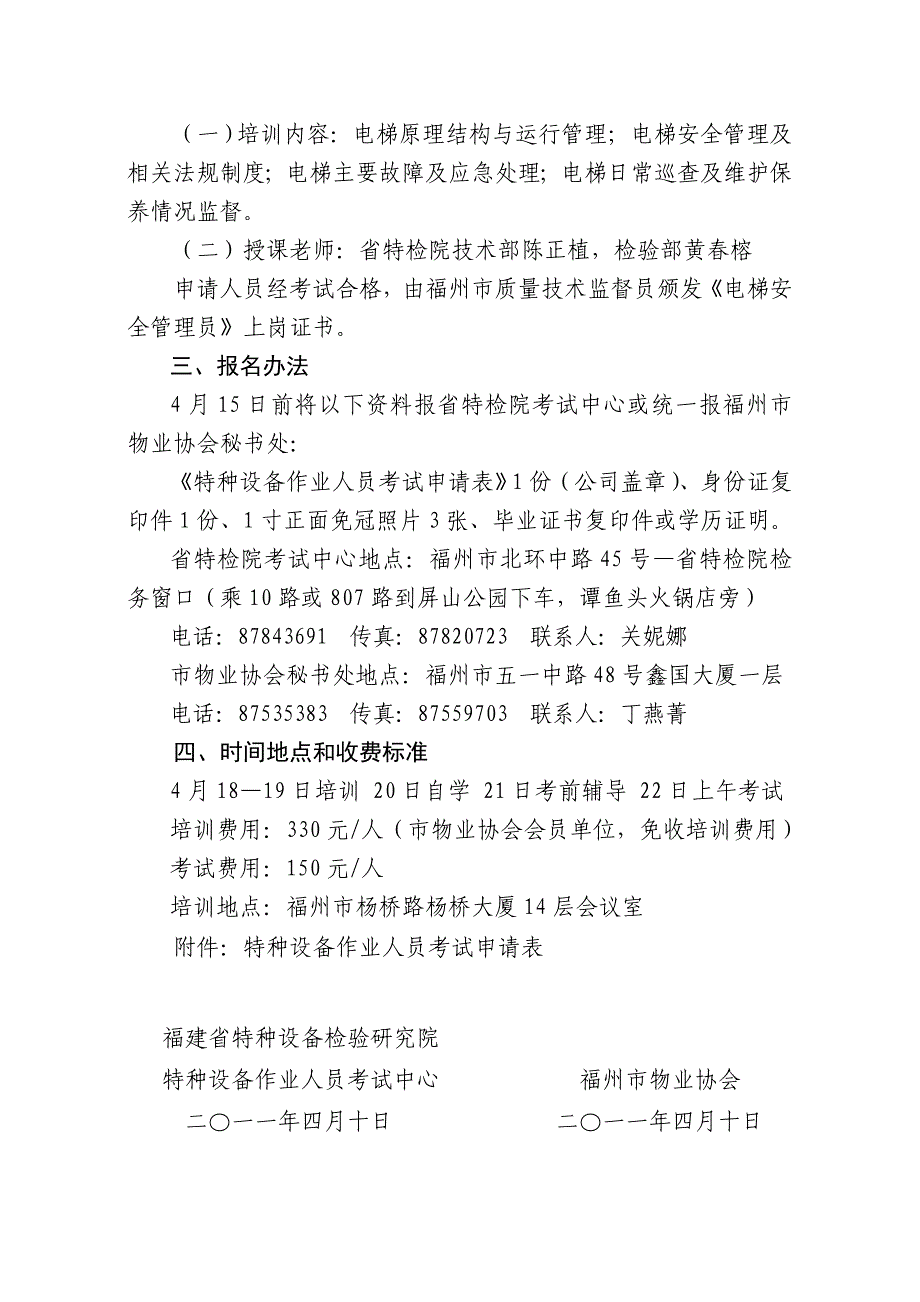 （一)培训内容：电梯原理结构与运行管理；电梯安全管理及
相关法规制度；电梯主要故障及应急处理；电梯日常巡查及维护保
养情况监督。
（二)授课老师：省特检院技术部陈正植，检验部黄春榕
申请人员经考试合格，由福州市质量技术监督员颁发《电梯安
全管理员》上岗证书。
三、报名办法
4月15日前将以下资料报省特检院考试中心或统一报福州市
物业协会秘书处：
《特种设备作业人员考试申请表》1份（公司盖章）、身份证复
印件1份、1寸正面免冠照片3张、毕业证书复印件或学历证明。
省特检院考试中心地点：福州市北环中路45号—省特检院检
务窗口（乘10路或807路到屏山公园下车，谭鱼头火锅店旁）
电话：87843691 传真：87820723 联系人：关妮娜
市物业协会秘书处地点：福州市五一中路48号鑫国大厦一层
电话：87535383 传真：87559703 联系人：丁燕菁
四、时间地点和收费标准
4月18—19日培训 20日自学 21日考前辅导 22日上午考试
培训费用：330元/人（市物业协会会员单位，免收培训费用）
考试费用：150元/人
培训地点：福州市杨桥路杨桥大厦14层会议室
附件：特种设备作业人员考试申请表
福建省特种设备检验研究院
特种设备作业人员考试中心 福州市物业协会
二〇一一年四月十日 二〇一一年四月十日